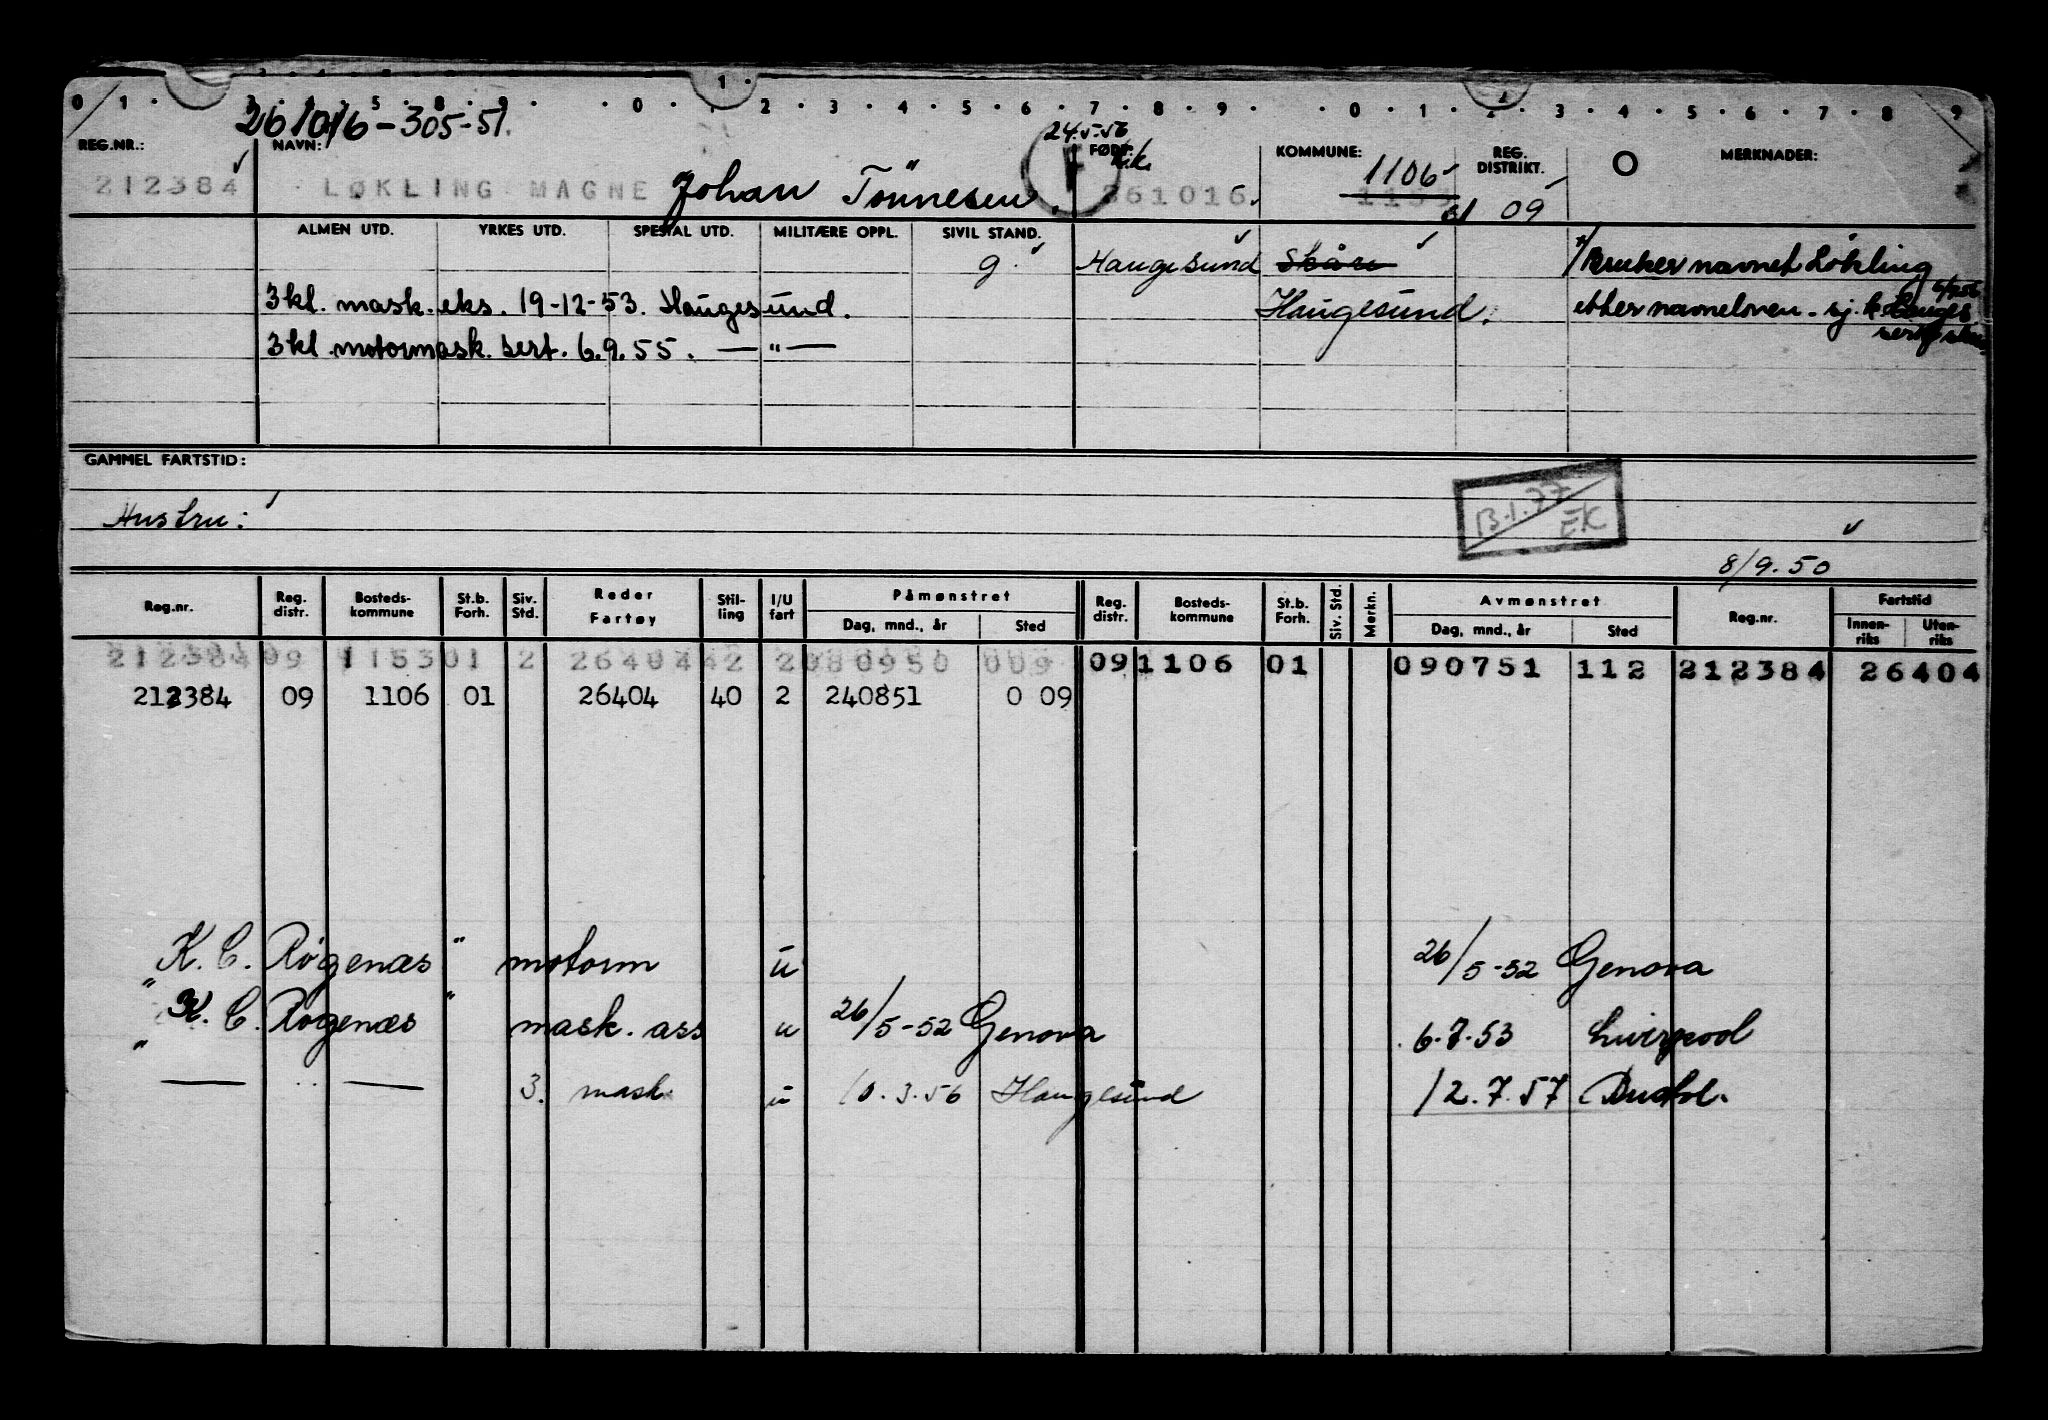 0 1 . 3 . 4 . 5 . 8 . 9 . . 0 . 1 . 2 . 3 . 4 . 5 . 6 . 7 . 8 . 9 . . 0 . 1 . 2 . 3 . 4 . 5 . 6 . 7 . 8 9
261016-305-51.
24.5.56
REG.NR.: NAVN: FØDT: KOMMUNE: REG. DISTRIKT. MERKNADER:
212384 LØKLING MAGNE Johan Tönnesen. 261016. 1106 09
ALMEN UTD. YRKES UTD. SPESIAL UTD. MILITÆRE OPPL. SIVIL STAND.
g. Haugesund Skåre Bruker navnet Lökling
3 kl. mask. eks. 19-12-53. Haugesund. Haugesund. etter navneloven - sj.
3 kl motormask. sert. 6.9.55. — " —
GAMMEL FARTSTID:
Hustru:
13.1.77 EK
8/9.50
Reg.nr. Reg. distr. Bosteds-kommune St.b. Forh. Siv. Std. Reder Fartøy Stil-ling I/U fart Påmønstret Reg. distr. Bosteds-kommune St.b. Forh. Siv. Std. Merkn. Avmønstret Reg.nr. Fartstid
Dag, mnd., år Sted Dag, mnd., år Sted Innen-riks Uten-riks
212384 09 1153 01 2 26404 42 2 080950 009 09 1106 01 090751 112 212384 26404
212384 09 1106 01 26404 40 2 240851 0 09
"K. C. Røgenæs" motorm u 26/5-52 Genova
"K. C. Rogenæs" mask. ass u 26/5-52 Genova 6.7.53 Liverpool
— " — 3. mask u 10.3.56 Haugesund 12.7.57